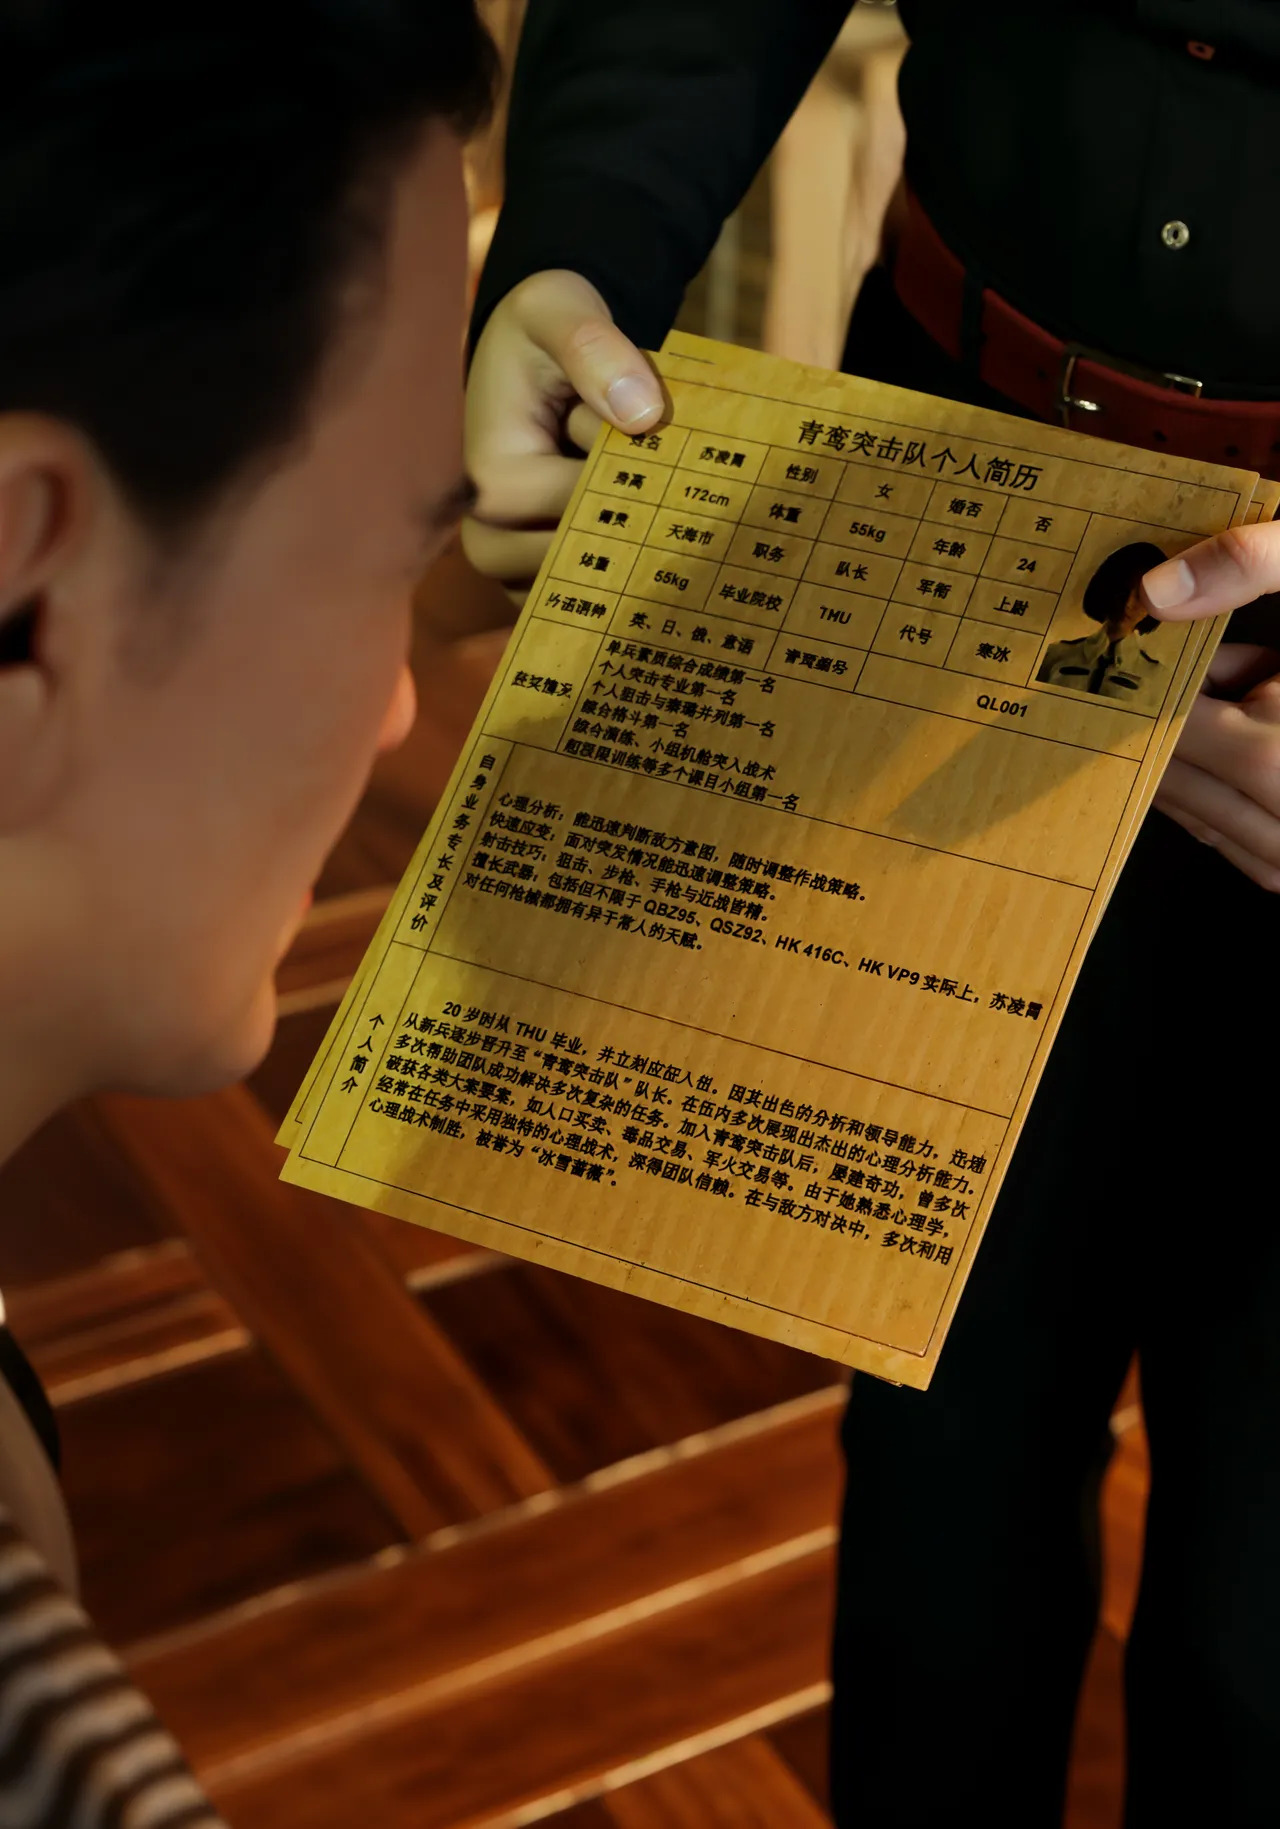 青鸾突击队个人简历
姓名 苏凌霄 性别 女 婚否 否
身高 172cm 体重 55kg 年龄 24
籍贯 天海市 职务 队长 军衔 上尉
体重 55kg 毕业院校 TMU 代号 寒冰
英、日、俄、意语 青鸾编号 QL001
获奖情况
单兵素质综合成绩第一名
个人突击专业第一名
个人狙击与秦璐并列第一名
综合格斗第一名
综合演练、小组机舱突入战术
超极限训练等多个课目小组第一名
自身业务专长及评价
心理分析：能迅速判断敌方意图，随时调整作战策略。
快速应变：面对突发情况能迅速调整策略。
射击技巧：狙击、步枪、手枪与近战皆精。
擅长武器：包括但不限于 QBZ95、QSZ92、HK 416C、HK VP9 实际上，苏凌霄
对任何枪械都拥有异于常人的天赋。
个人简介
20 岁时从 THU 毕业，并立刻应征入伍。因其出色的分析和领导能力，迅速
从新兵逐步晋升至“青鸾突击队”队长。在伍内多次展现出杰出的心理分析能力。
多次帮助团队成功解决多次复杂的任务。加入青鸾突击队后，屡建奇功，曾多次
破获各类大案要案，如人口买卖、毒品交易、军火交易等。由于她熟悉心理学，
经常在任务中采用独特的心理战术，深得团队信赖。在与敌方对决中，多次利用
心理战术制胜，被誉为“冰雪蔷薇”。